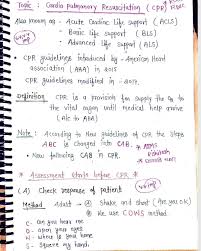 Topic : Cardio pulmonary Resuscitation (CPR)
Also known as :- Acute Cardiac Life support (ACLS)
Basic Life support (BLS)
Advanced Life support (ALS)
• CPR guidelines introduced by - American Heart
association (AHA) in 2015
CPR guidelines modified in - 2017.
Definition CPR is a provision fev supply the O2 to
the vital organ until medical help arrive
(Alc to AHA)
Note : According to New guidelines of CPR the steps
ABC is changed into CAB.
• Now following CAB in CPR.
* Assessment steps before CPR *
(A) Check response of patient
Method : Adult → Shake and shout (Are you ok)
→ We use COWS method
C - Can you hear me
O - open your eyes
W - where is your home
S - squeeze my hand.